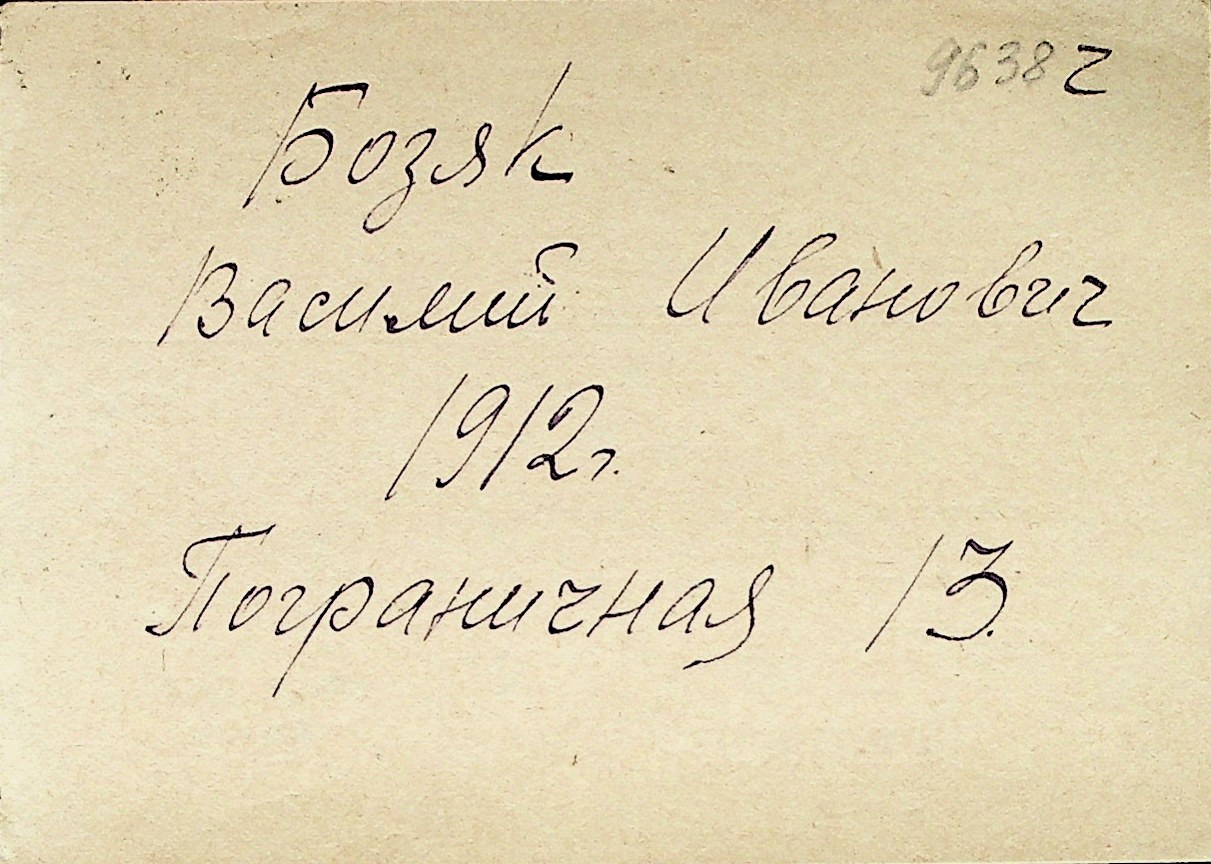 9638 г
Бозяк
Василий Иванович
1912г.
Пограничная 13.